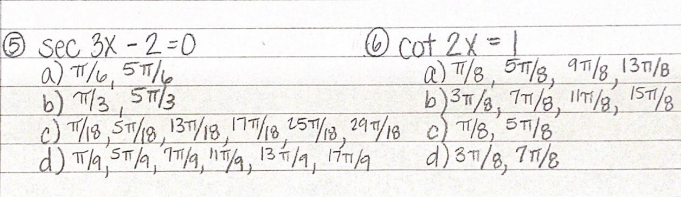 ⑤ sec 3x - 2 = 0
a) π/6, 5π/6
b) π/3, 5π/3
c) π/18, 5π/18, 13π/18, 17π/18, 25π/18, 29π/18
d) π/9, 5π/9, 7π/9, 11π/9, 13π/9, 17π/9
⑥ cot 2x = 1
a) π/8, 5π/8, 9π/8, 13π/8
b) 3π/8, 7π/8, 11π/8, 15π/8
c) π/8, 5π/8
d) 3π/8, 7π/8